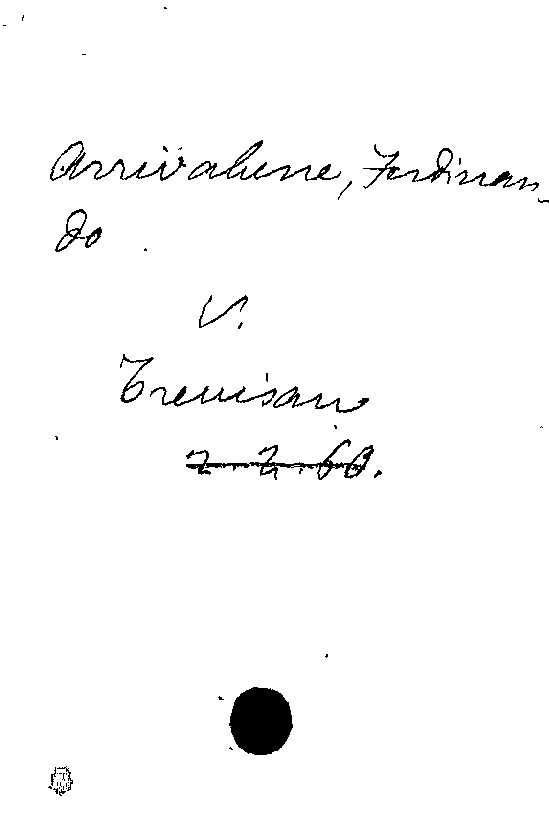 Arrivabene, Ferdinan-
do
V.
Trevisan
2.2.60.